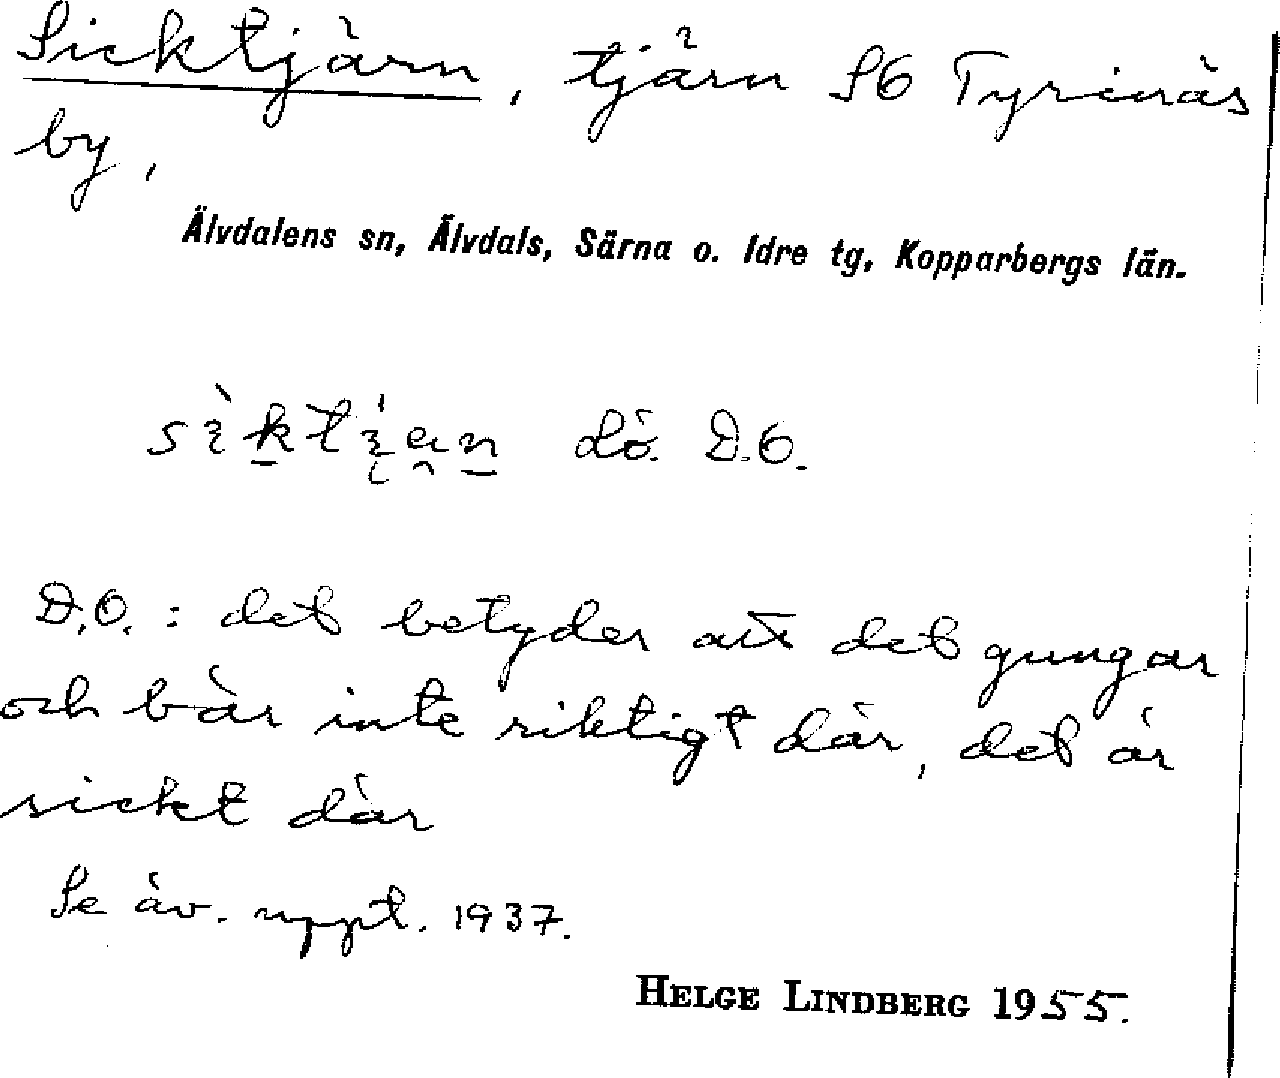 Sicktjärn, tjärn SÖ Tyrinäs
by,
Älvdalens sn, Älvdals, Särna o. Idre tg, Kopparbergs län.
dö. D.O.
D.O.: det betyder att det gungar
och bär inte riktigt där, det är
sickt där
Se äv. uppt. 1937.
HELGE LINDBERG 1955.